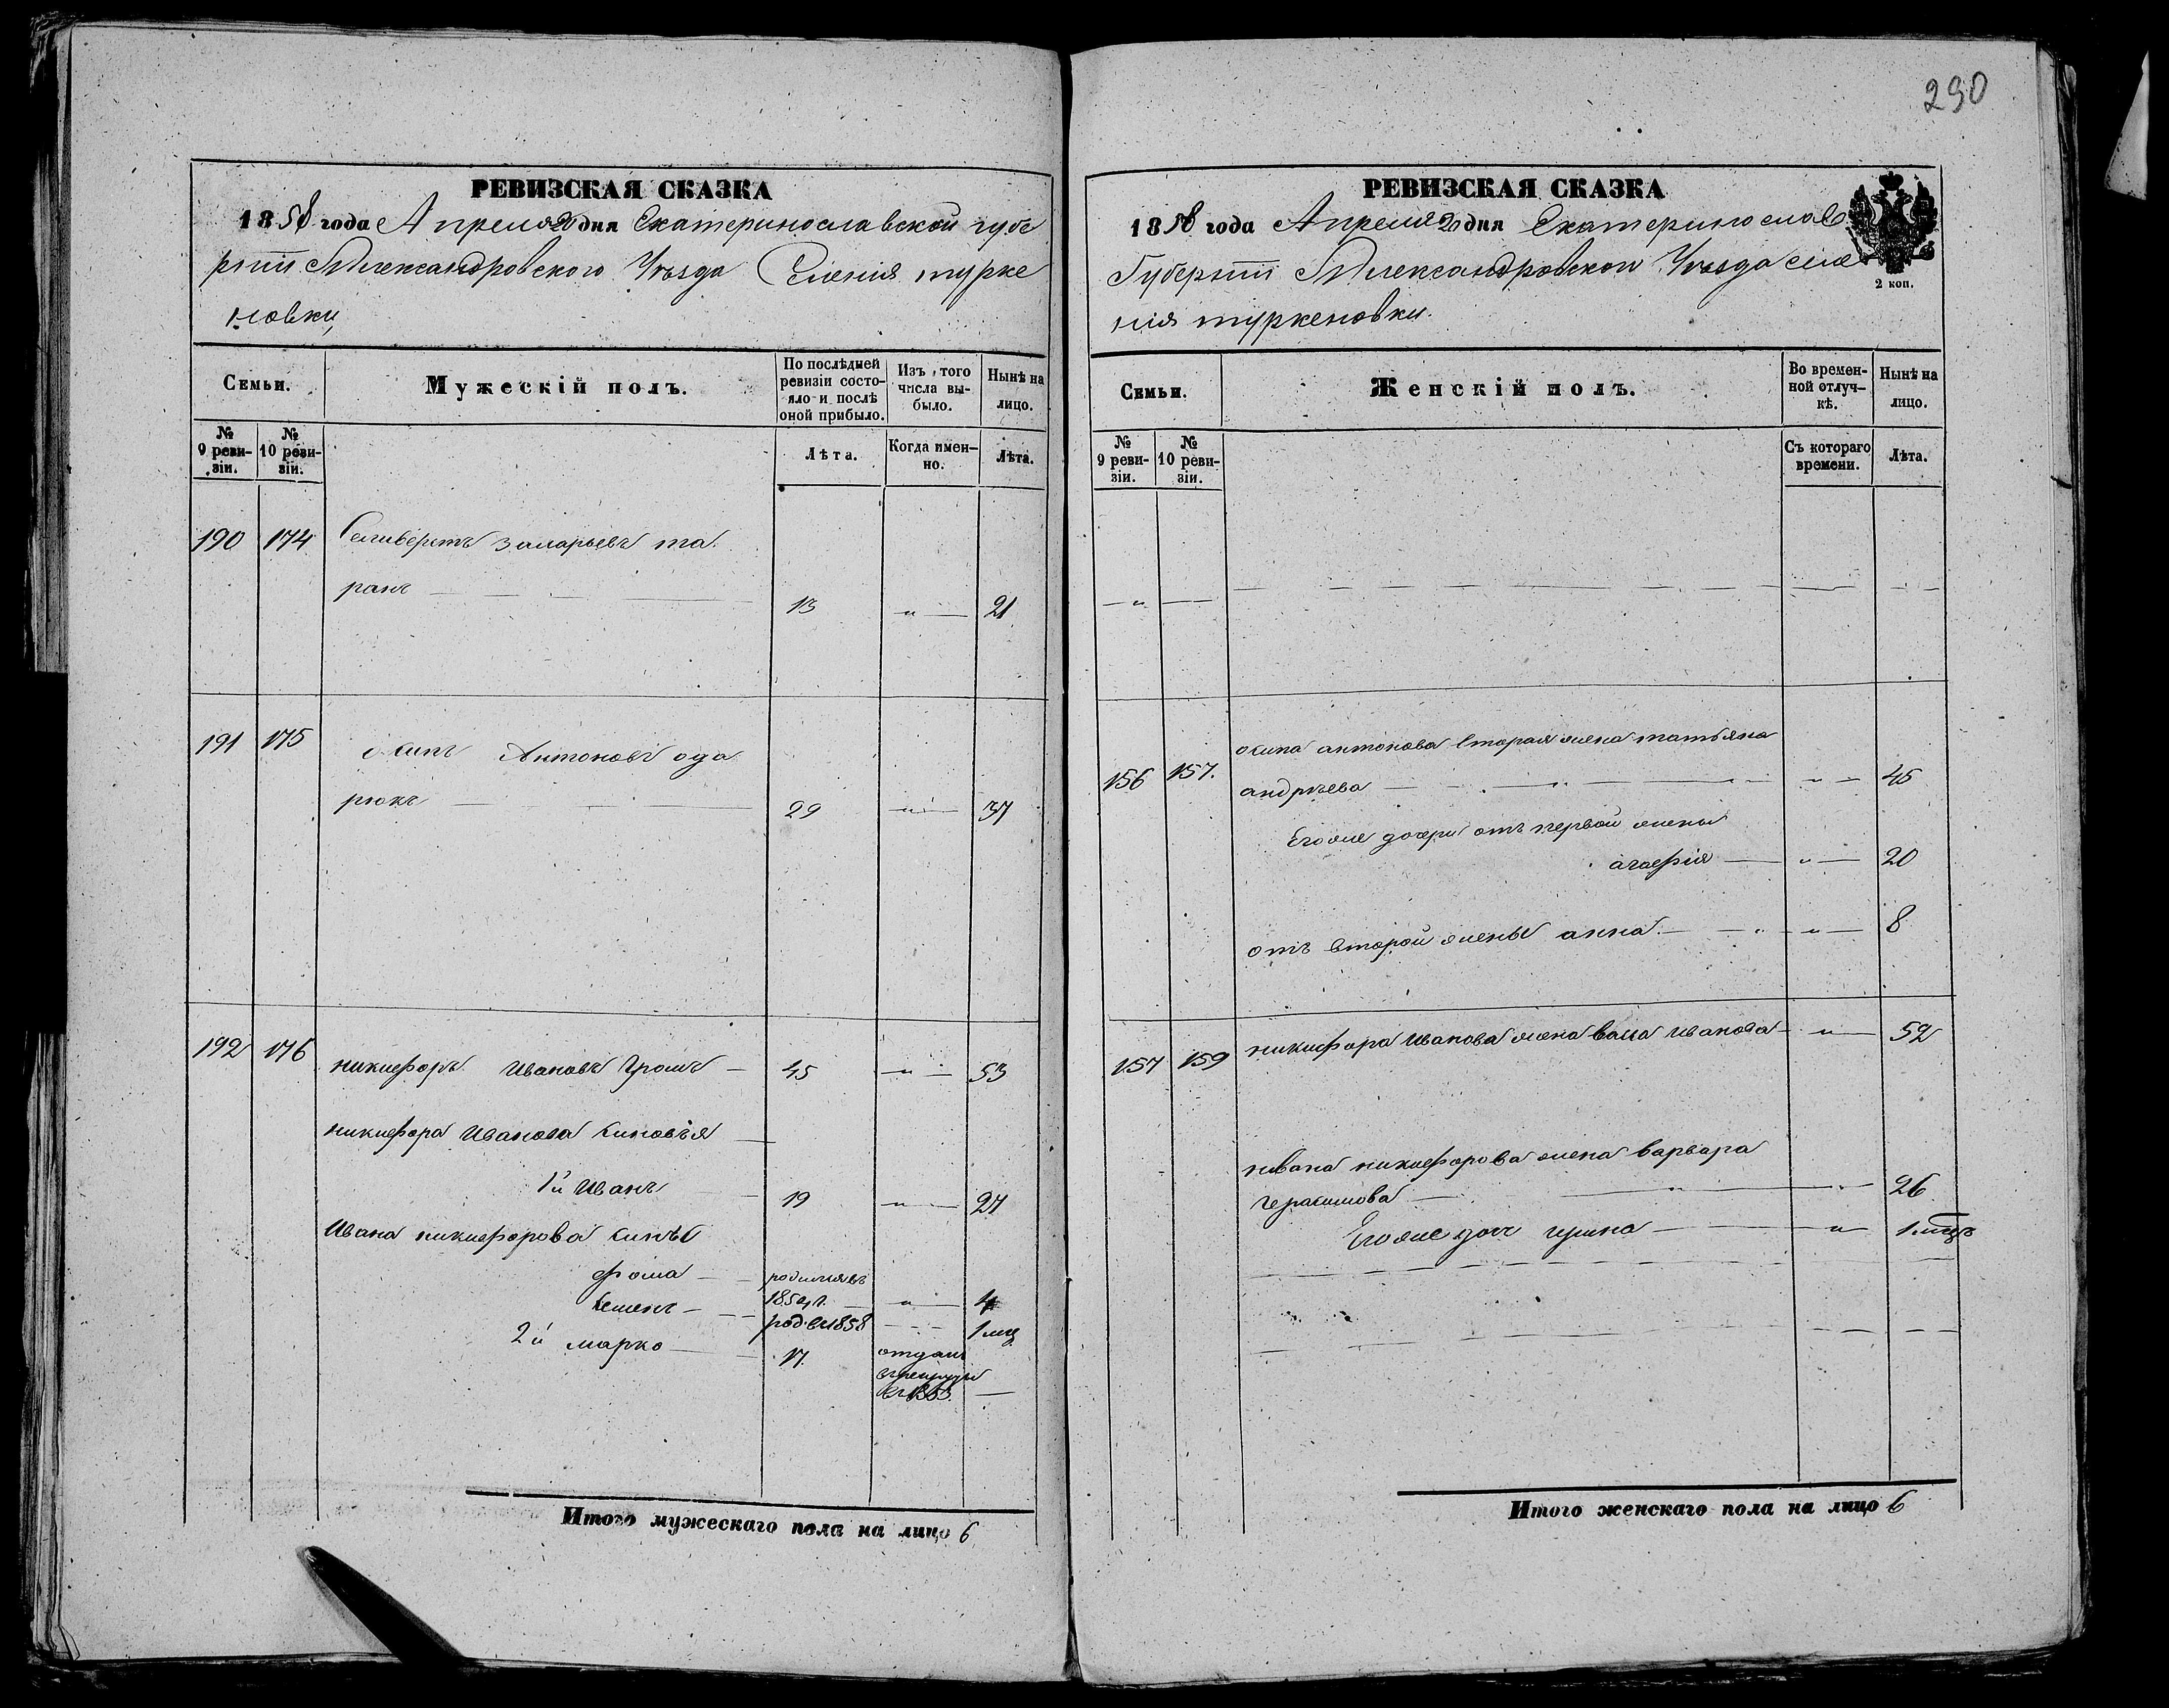 290
РЕВИЗСКАЯ СКАЗКА
1858 года Апреля 20 дня Екатеринославской губе
рніи Александровского Уѣзда Селенія турке
новки
Семьи.
Мужескій полъ.
По послѣдней ревизіи состояло и послѣ оной прибыло.
Изъ того числа выбыло.
Нынѣ на лицо.
№ 9 ревизіи.
№ 10 ревизіи.
Лѣта.
Когда именно.
Лѣта.
190 174 Селиверстъ та
ранъ 13 „ 21
191 175 осипъ Антоновъ ода
рюкъ 29 „ 37
192 176 никифоръ Ивановъ Громъ 45 „ 53
никифора Иванова синовъя
1й Иванъ 19 „ 27
Ивана никифорова сины
фома родился въ
185 г. „ 4
Семенъ род. въ 1858 1 мц
2й марко 17. отданъ
в рекруты
въ 1853
Итого мужескаго пола на лицо 6
РЕВИЗСКАЯ СКАЗКА
1858 года Апреля 20 дня Екатеринослав
Губерніи Александровскои Уѣзда селе
нія туркеновки.
2 коп.
Семьи.
Женскій полъ.
Во временной отлучкѣ.
Нынѣ на лицо.
№ 9 ревизіи.
№ 10 ревизіи.
Съ котораго времени.
Лѣта.
„
осипа антонова вторая жена татьяна
156 157. андрѣева „ 45
Егоже дочери отъ первой жены
агафія „ 20
отъ второй жены анна „ 8
157 159 никифора Иванова жена Иванова „ 52
ивана никифорова жена варвара
герасимова „ 26
Егоже доч ирина „ 1 мцъ
Итого женскаго пола на лицо 6